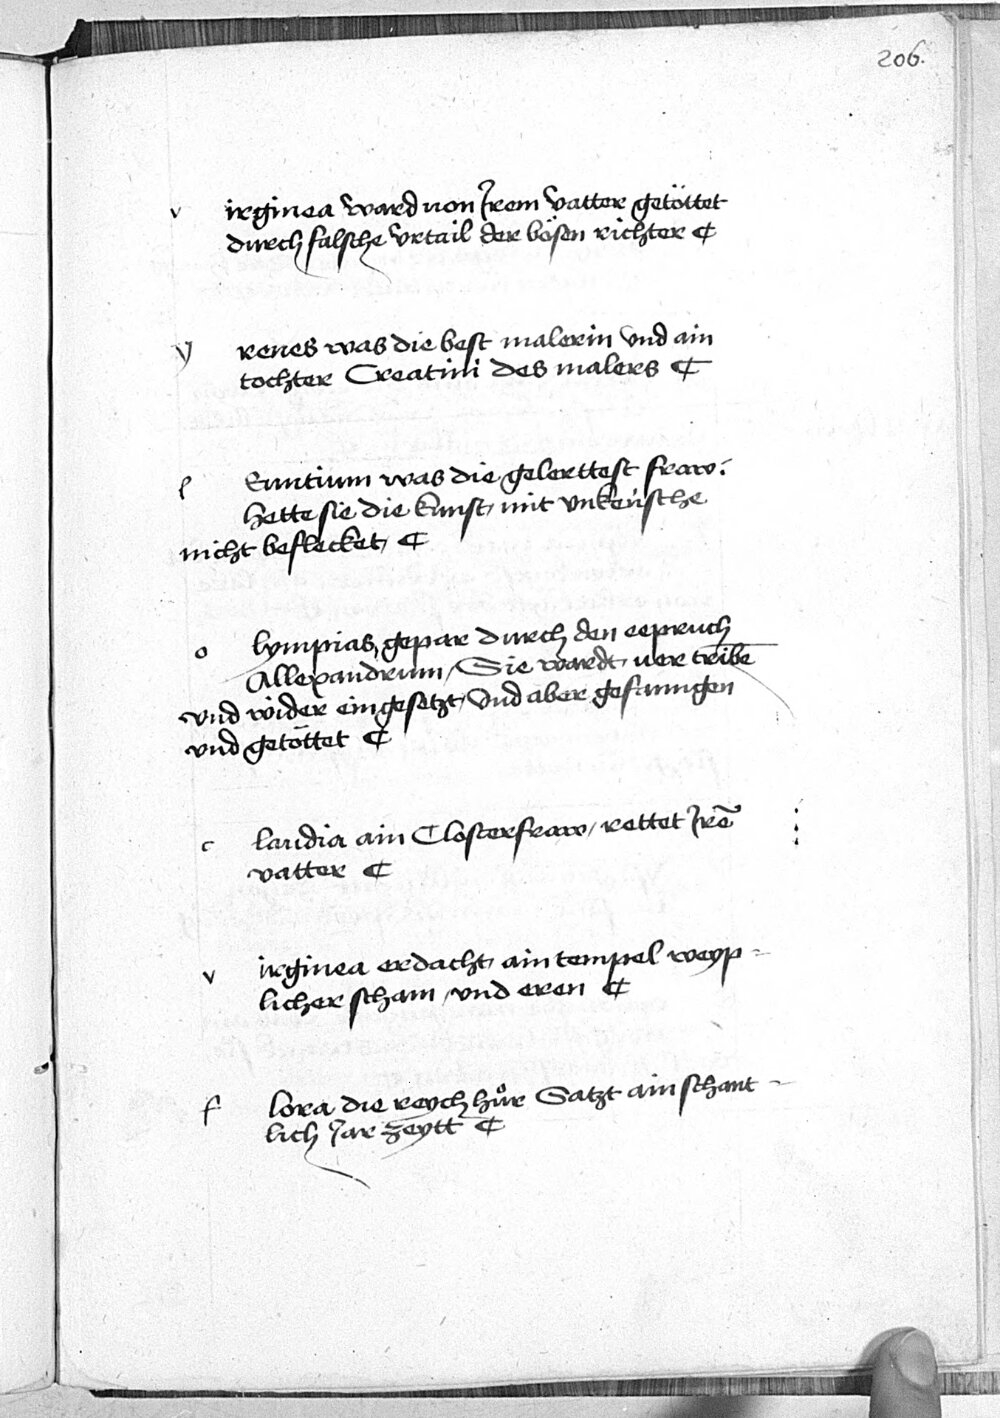 206.
v irginea ward von Jrem vatter getöttet
durch falsche vrtail der bösen richter ¶
y renes was die best malerin vnd ain
tochter Creatini des malers ¶
l Euntium was die gelerttest fraw.
hette sie die kunst, mit vnkeüsche
nicht beflecket, ¶
o lympias, gepar durch den eepruch
Allexandrum, Sie wardt, uer tribē
vnd wider ein gesetzt, vnd aber gefanngen
vnd getöttet ¶
c laudia ain Closterfraw, rettet Jrē
vatter ¶
v irginea erdacht, ain tempel weyp-
licher scham, vnd eren ¶
f lora die reych hůr Satzt ain schant-
lich Jar zeytt ¶